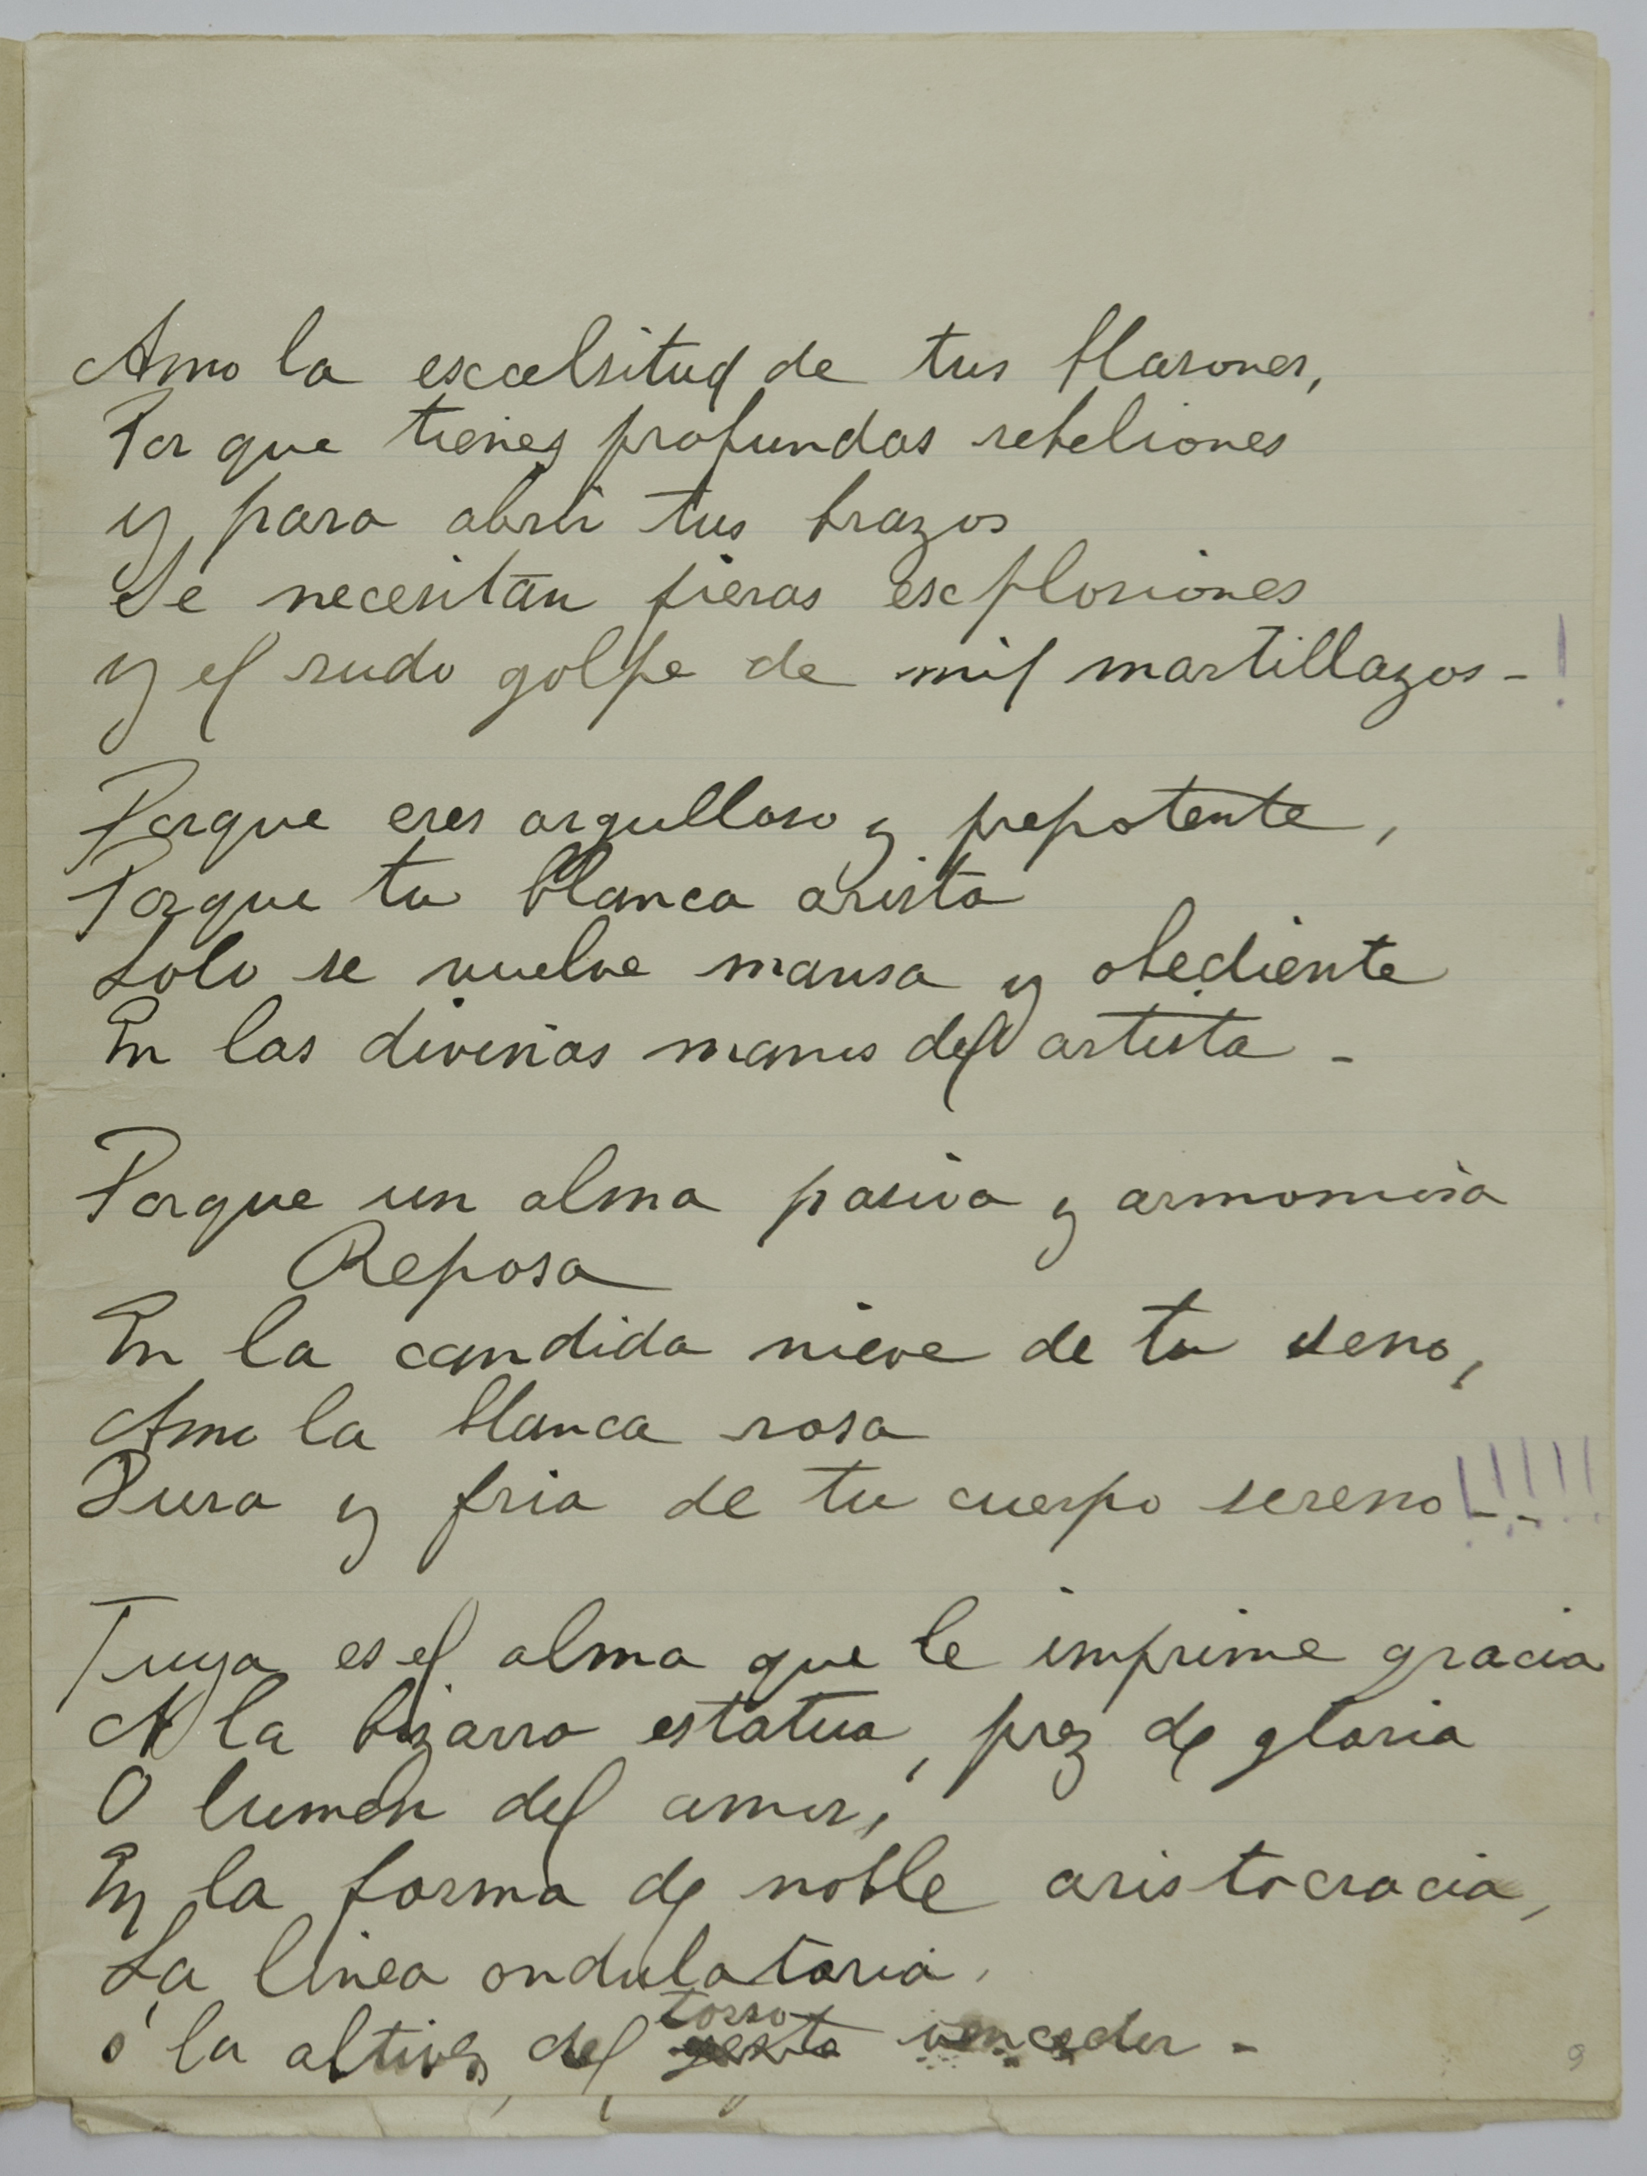 Amo la excelsitud de tus blasones,
Por que tienes profundas rebeliones
y para abrir tus brazos
Se necesitan fieras explosiones
y el rudo golpe de mil martillazos - !
Porque eres orgulloso y prepotente,
Porque tu blanca arista
Solo se vuelve mansa y obediente
En las divinas manos del artista -
Porque un alma pasiva y armoniosa
Reposa
En la candida nieve de tu seno,
Amo la blanca rosa
Pura y fria de tu cuerpo sereno - - !!!!!
Tuya es el alma que le imprime gracia
A la bizarra estatua, prez de gloria
O lumen del amor,
En la forma de noble aristocracia,
La linea ondulatoria,
ó la altivez del torso gesto vencedor -
9